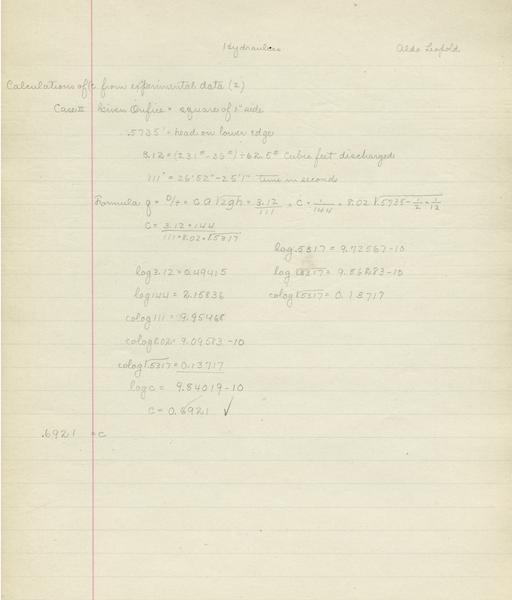 Hydraulics Aldo Leopold
Calculation of c from experimental data (2)
Case II Given Orifice = square of 1" side
.5735' = head on lower edge
3.12 = (231# - 36#) ÷ 62.5# Cubic feet discharged
111" = 26'52" - 25'1" time in seconds
Formula q = Q/t = c a √2gh = 3.12/111 = c × 1/144 × 8.02 √.5735 - 1/2 × 1/12
C = 3.12 × 144 / 111 × 8.02 × √.5317
log .5317 = 9.72567-10
log 3.12 = 0.49415 log √.5317 = 9.86283-10
log 144 = 2.15836 colog √.5317 = 0.13717
colog 111 = 9.95468
colog 8.02 = 9.09583 -10
colog √.5317 = 0.13717
log c = 9.84019-10
C = 0.6921 ✓
.6921 = c